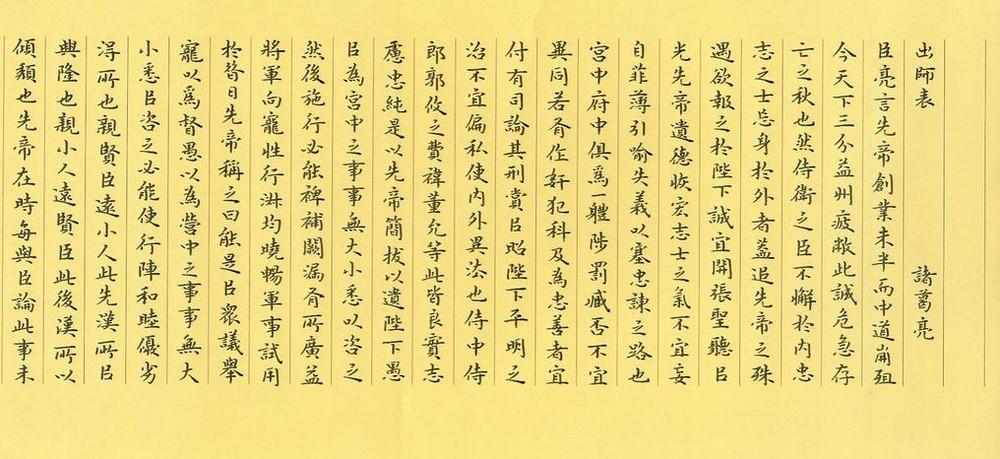 出師表
諸葛亮
臣亮言先帝創業未半而中道崩殂
今天下三分益州疲敝此誠危急存
亡之秋也然侍衛之臣不懈於內忠
志之士忘身於外者蓋追先帝之殊
遇欲報之於陛下誠宜開張聖聽以
光先帝遺德恢宏志士之氣不宜妄
自菲薄引喻失義以塞忠諫之路也
宮中府中俱為一體陟罰臧否不宜
異同若有作奸犯科及為忠善者宜
付有司論其刑賞以昭陛下平明之
治不宜偏私使內外異法也侍中侍
郎郭攸之費禕董允等此皆良實志
慮忠純是以先帝簡拔以遺陛下愚
以為宮中之事事無大小悉以咨之
然後施行必能裨補闕漏有所廣益
將軍向寵性行淑均曉暢軍事試用
於昔日先帝稱之曰能是以眾議舉
寵以為督愚以為營中之事事無大
小悉以咨之必能使行陣和睦優劣
得所也親賢臣遠小人此先漢所以
興隆也親小人遠賢臣此後漢所以
傾頹也先帝在時每與臣論此事未